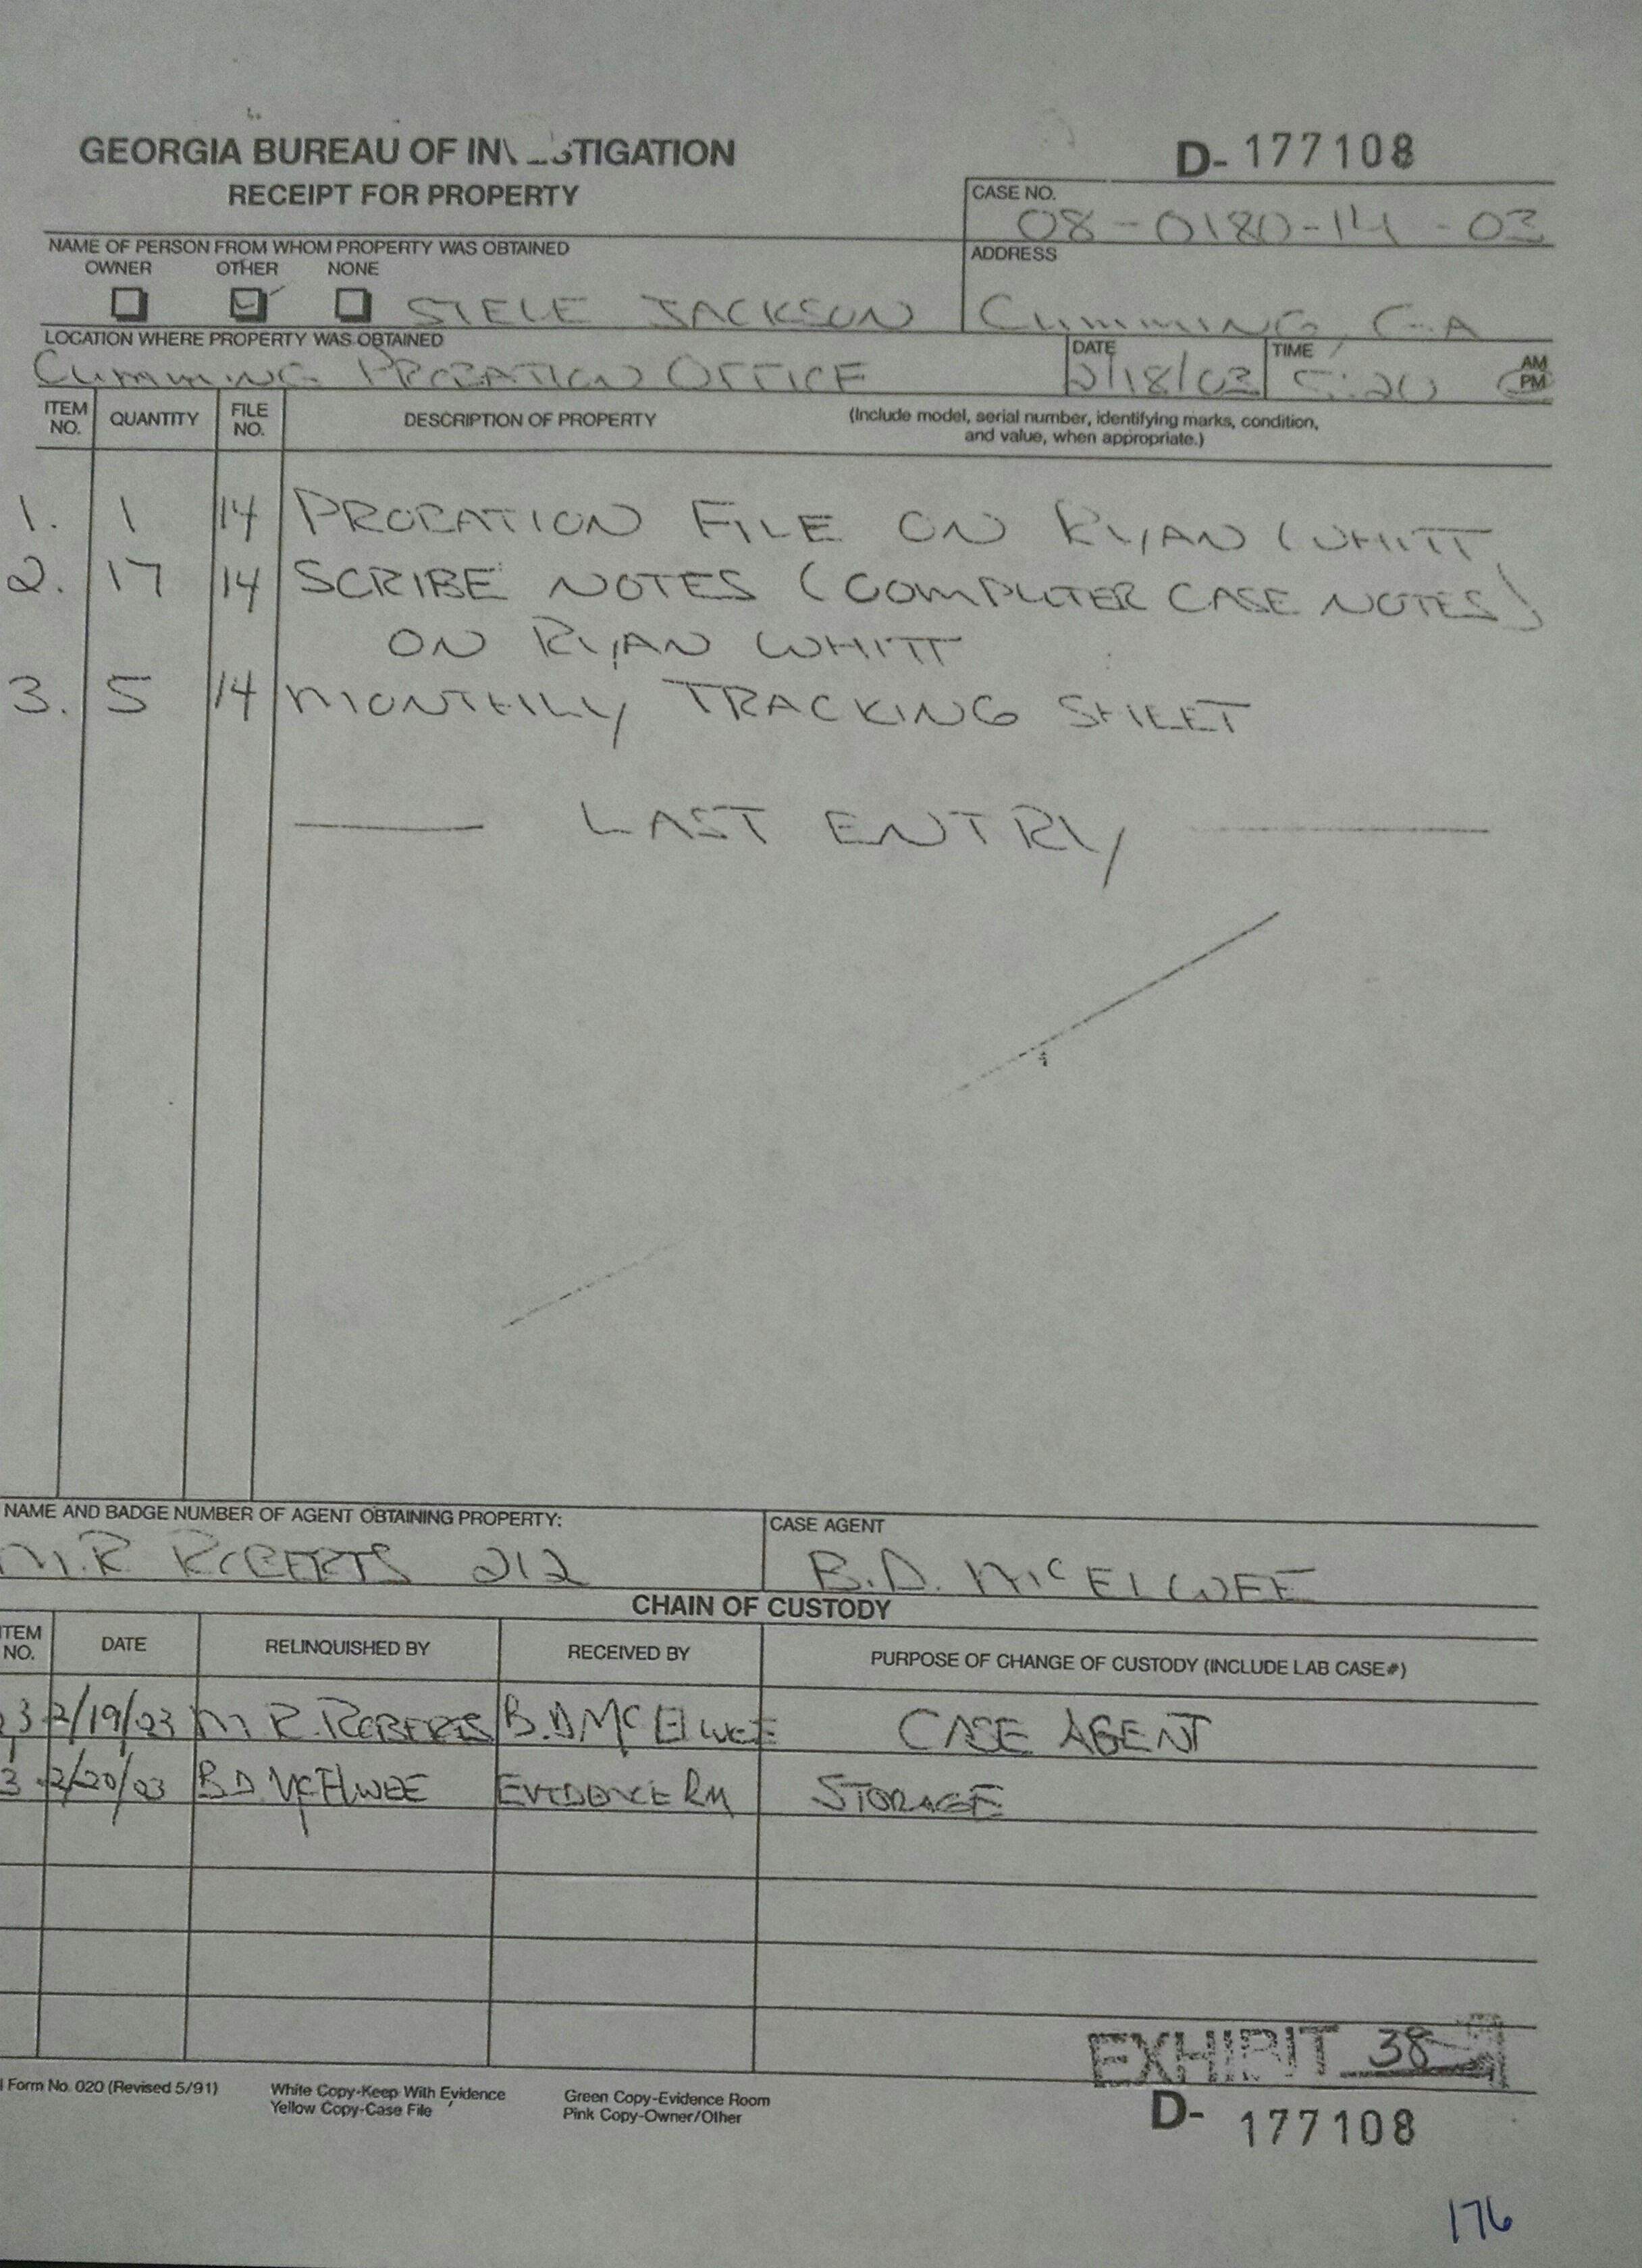 GEORGIA BUREAU OF INV STIGATION
D- 177108
RECEIPT FOR PROPERTY
CASE NO.
08-0180-14-03
NAME OF PERSON FROM WHOM PROPERTY WAS OBTAINED
ADDRESS
OWNER OTHER NONE
STEVE JACKSON
CUMMING, GA
LOCATION WHERE PROPERTY WAS OBTAINED
DATE
TIME
AM
PM
CUMMING PROBATION OFFICE 2/18/03 5:20
ITEM NO. QUANTITY FILE NO. DESCRIPTION OF PROPERTY (Include model, serial number, identifying marks, condition,
and value, when appropriate.)
1. 1 14 PROBATION FILE ON RYAN WHITT
2. 17 14 SCRIBE NOTES (COMPUTER CASE NOTES)
ON RYAN WHITT
3. 5 14 MONTHLY TRACKING SHEET
LAST ENTRY
NAME AND BADGE NUMBER OF AGENT OBTAINING PROPERTY:
CASE AGENT
M.R. ROBERTS 212
B.D. McELWEE
CHAIN OF CUSTODY
ITEM NO. DATE RELINQUISHED BY RECEIVED BY PURPOSE OF CHANGE OF CUSTODY (INCLUDE LAB CASE#)
3 2/19/03 M R. ROBERTS B.D McElwEE CASE AGENT
3 2/20/03 B D. McElwEE EVIDENCE RM STORAGE
EXHIBIT 38
Form No. 020 (Revised 5/91)
White Copy-Keep With Evidence
Yellow Copy-Case File
Green Copy-Evidence Room
Pink Copy-Owner/Other
D- 177108
176